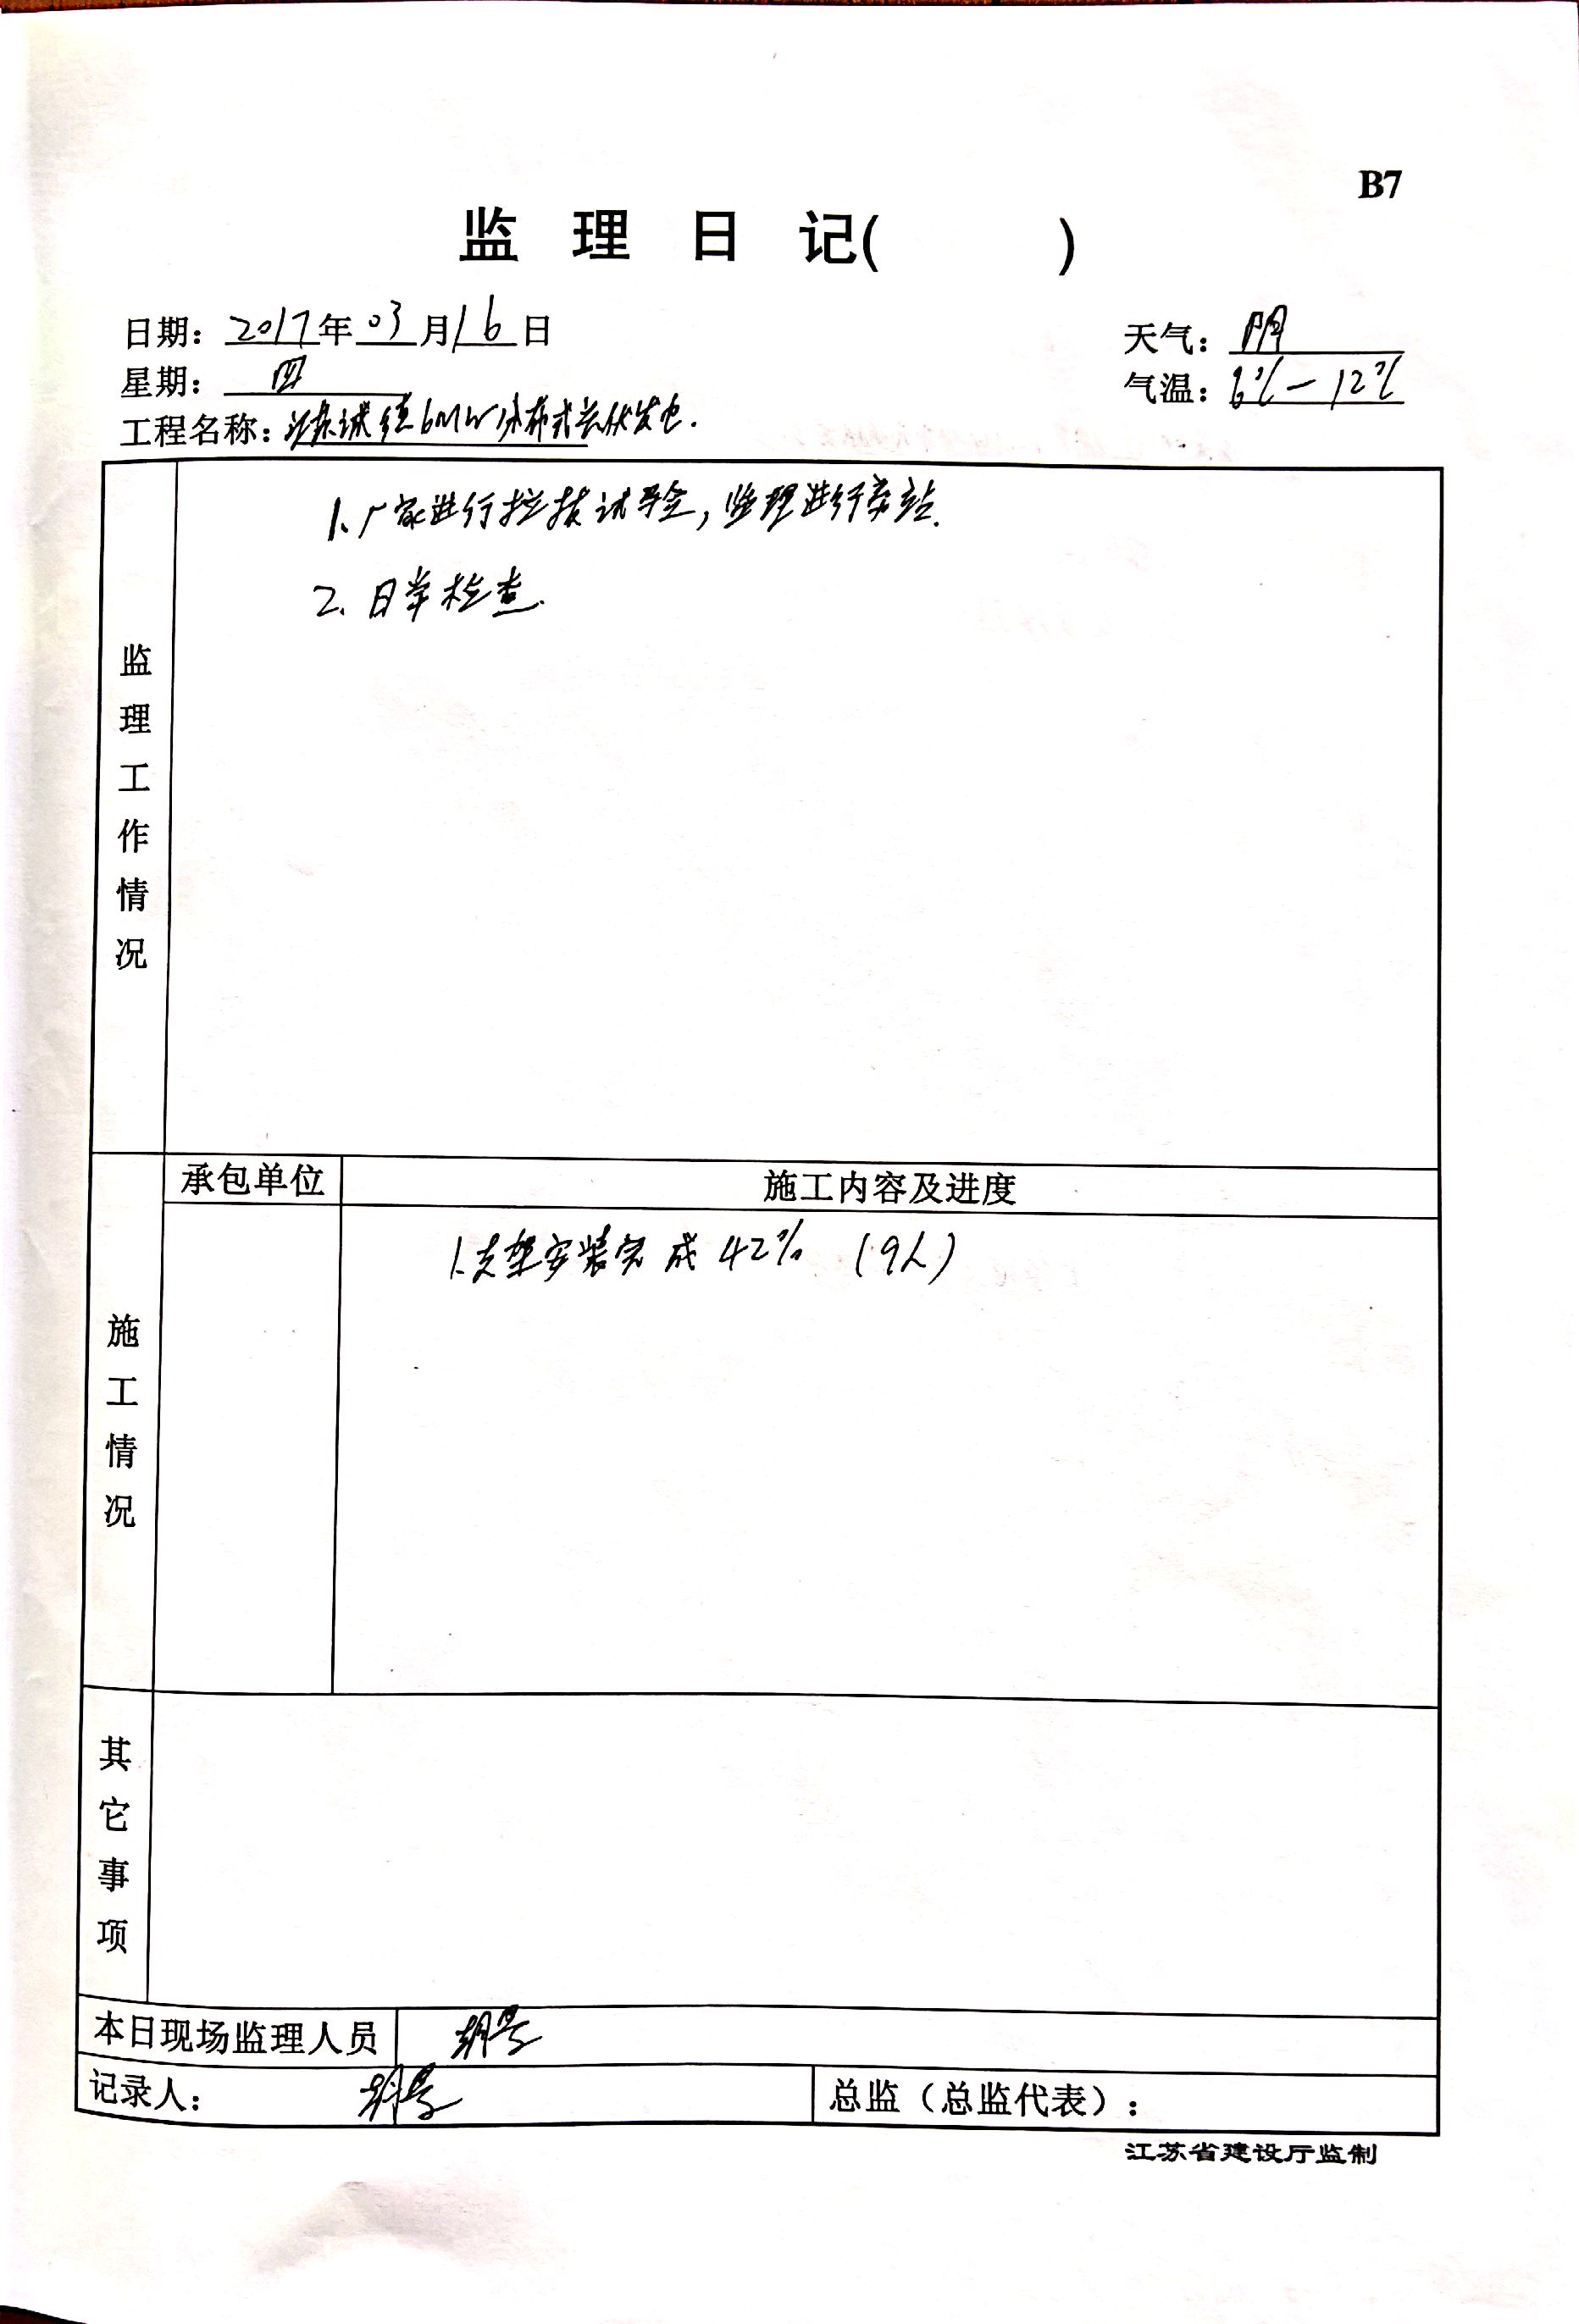 B7
监 理 日 记( )
日期：2017年03月16日
天气：阴
星期：四
气温：6℃-12℃
工程名称：6MW分布式光伏发电.
监理工作情况
1、厂家进行拉拔试验，监理进行旁站.
2、日常检查.
承包单位
施工内容及进度
施工情况
1.支架安装完成42% (9人)
其它事项
本日现场监理人员
记录人：
总监（总监代表）：
江苏省建设厅监制